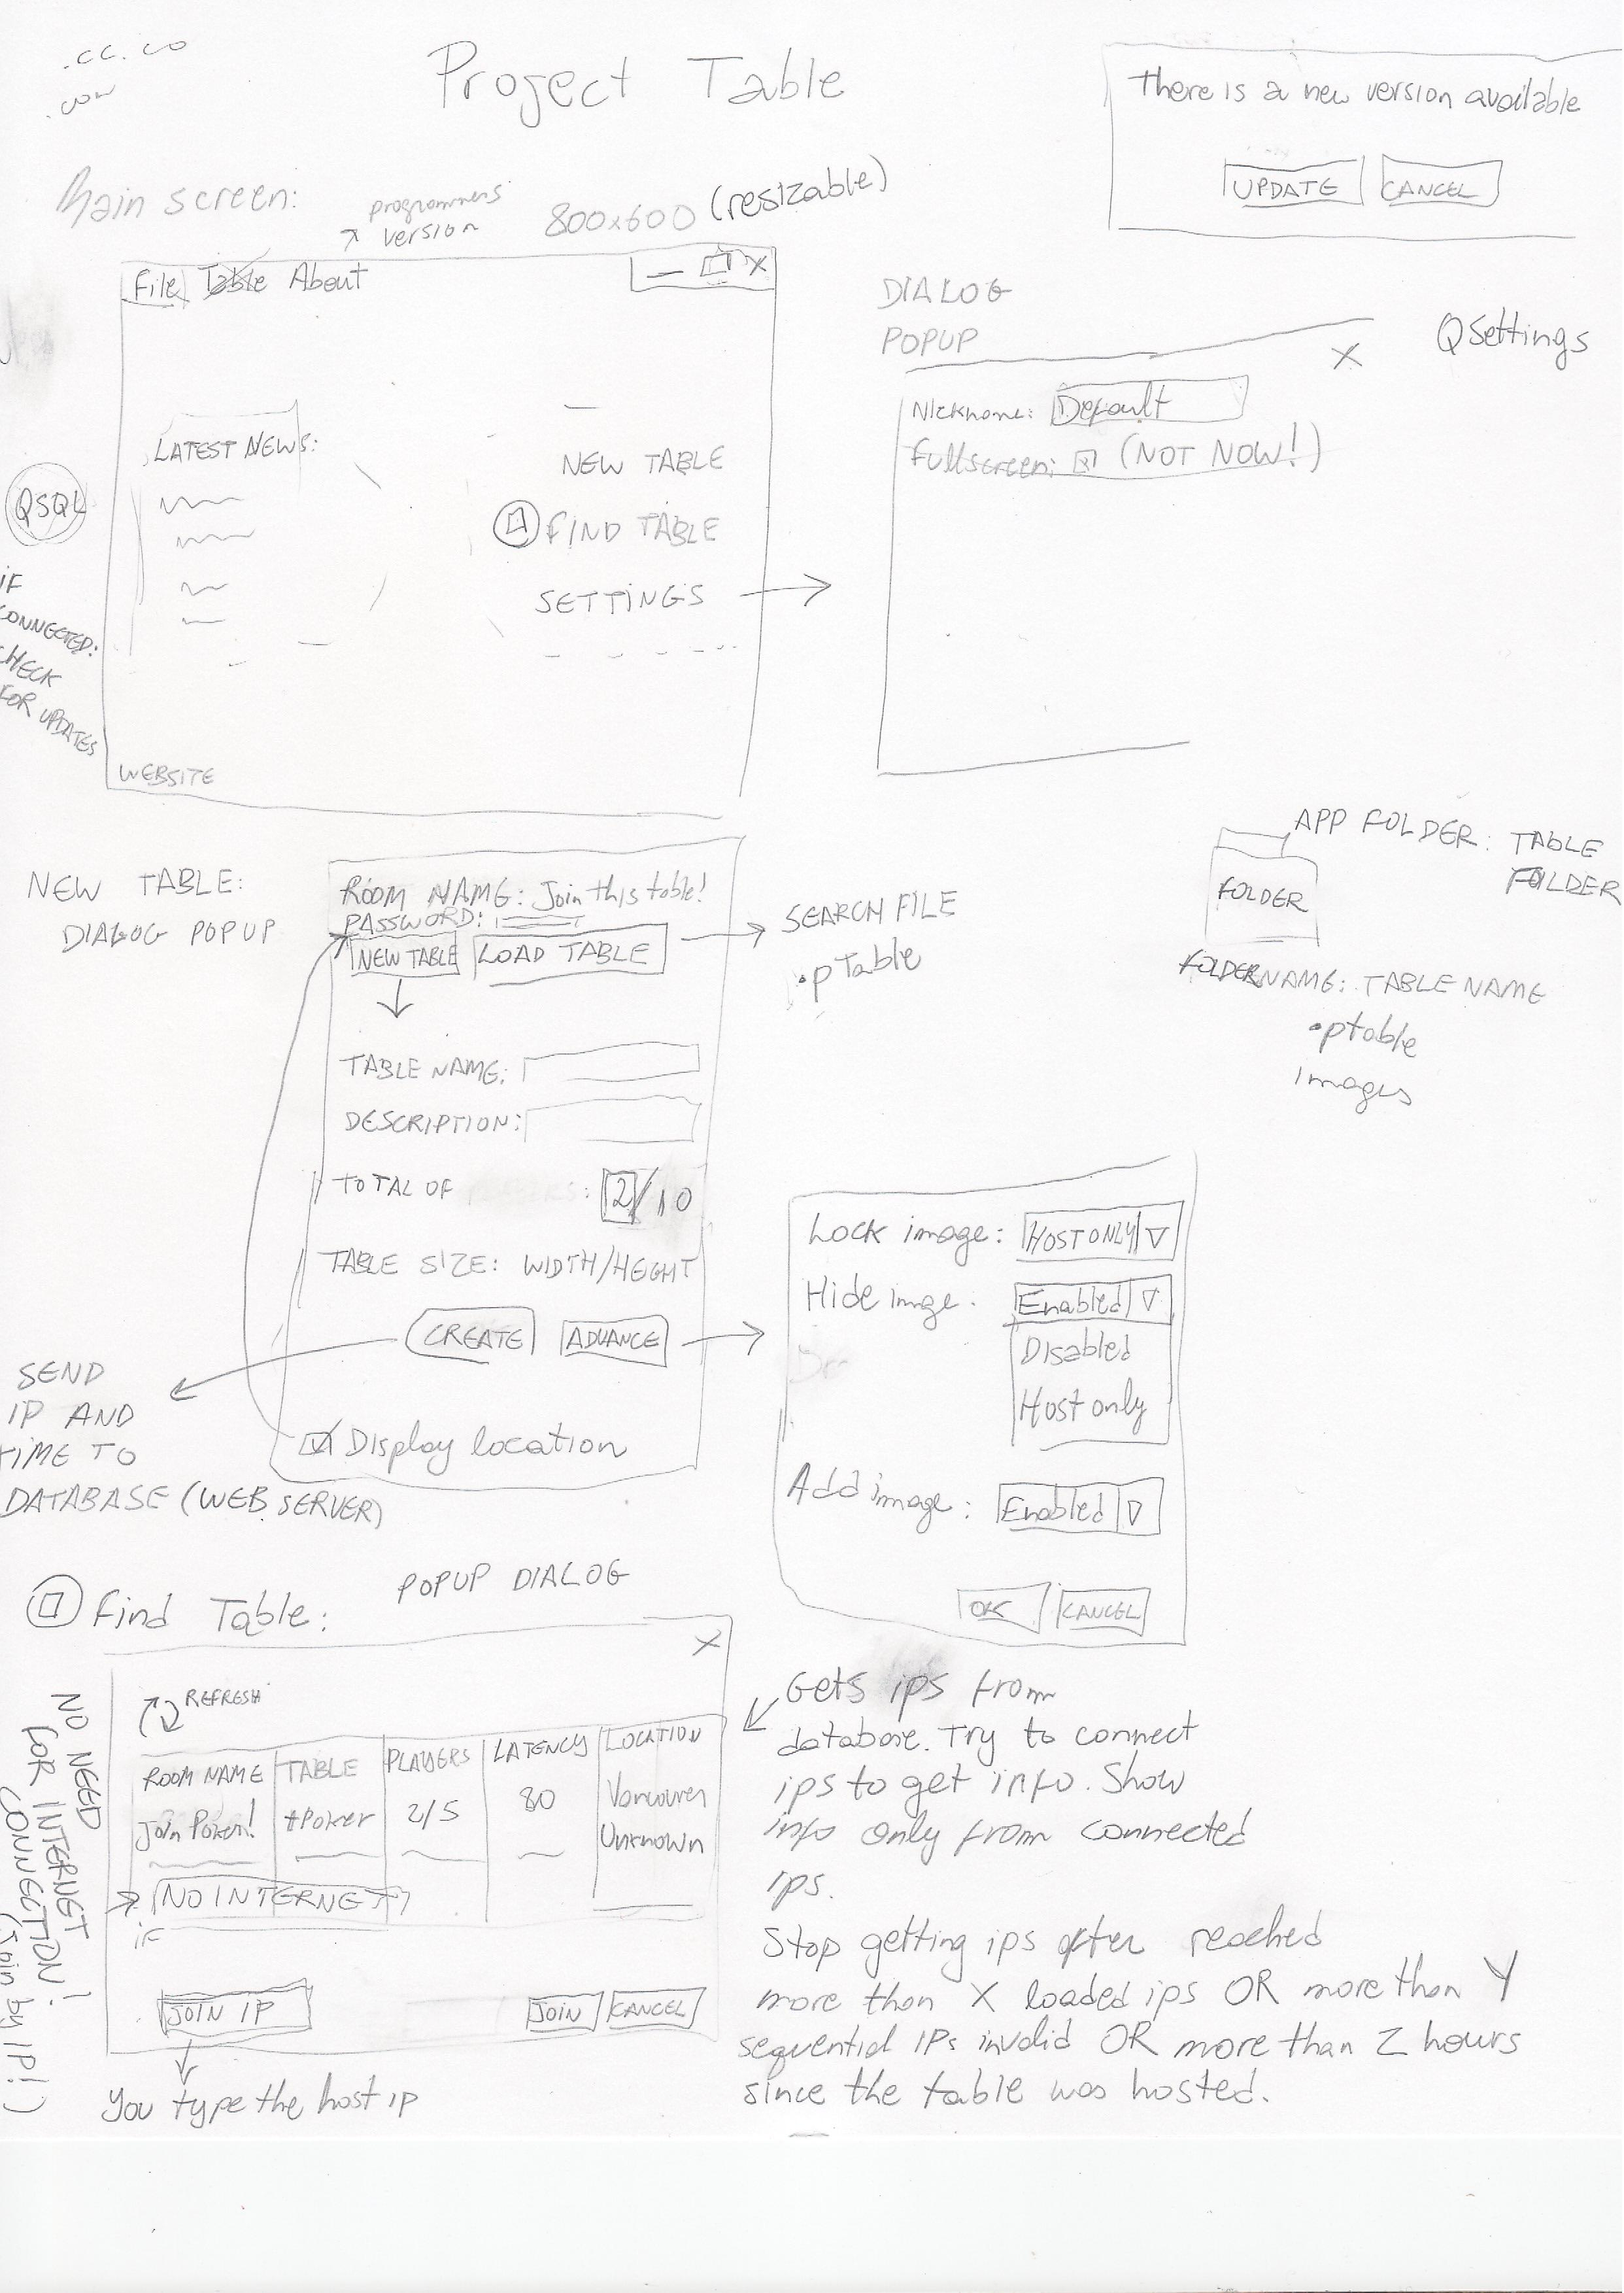 .cc.co
.com
Project Table
There is a new version available
UPDATE CANCEL
Main screen:
programmers
version
800x600 (resizable)
File Table About
X
LATEST NEWS:
NEW TABLE
FIND TABLE
SETTINGS
WEBSITE
QSQL
IF
CONNECTED:
CHECK
FOR UPDATES
DIALOG
POPUP
X
QSettings
Nickname: Default
Fullscreen: (NOT NOW!)
NEW TABLE:
DIALOG POPUP
ROOM NAME: Join this table!
PASSWORD:
NEW TABLE LOAD TABLE
SEARCH FILE
.pTable
TABLE NAME:
DESCRIPTION:
TOTAL OF : 2/10
TABLE SIZE: WIDTH/HEIGHT
CREATE ADVANCE
Display location
SEND
IP AND
TIME TO
DATABASE (WEB SERVER)
APP FOLDER: TABLE
FOLDER
FOLDER
FOLDERNAME: TABLE NAME
.ptable
images
Lock image: HOST ONLY
Hide image. Enabled
Disabled
Host only
Add image: Enabled
OK CANCEL
Find Table:
POPUP DIALOG
X
REFRESH
ROOM NAME TABLE PLAYERS LATENCY LOCATION
Join Poker! tPoker 2/5 80 Vancouver
Unknown
NO INTERNET
IF
JOIN IP JOIN CANCEL
You type the host ip
NO NEED
FOR INTERNET
CONNECTION!
(Join by IP!)
Gets ips from
database. Try to connect
ips to get info. Show
info only from connected
ips.
Stop getting ips after reached
more than X loaded ips OR more than Y
sequential IPs invalid OR more than Z hours
since the table was hosted.